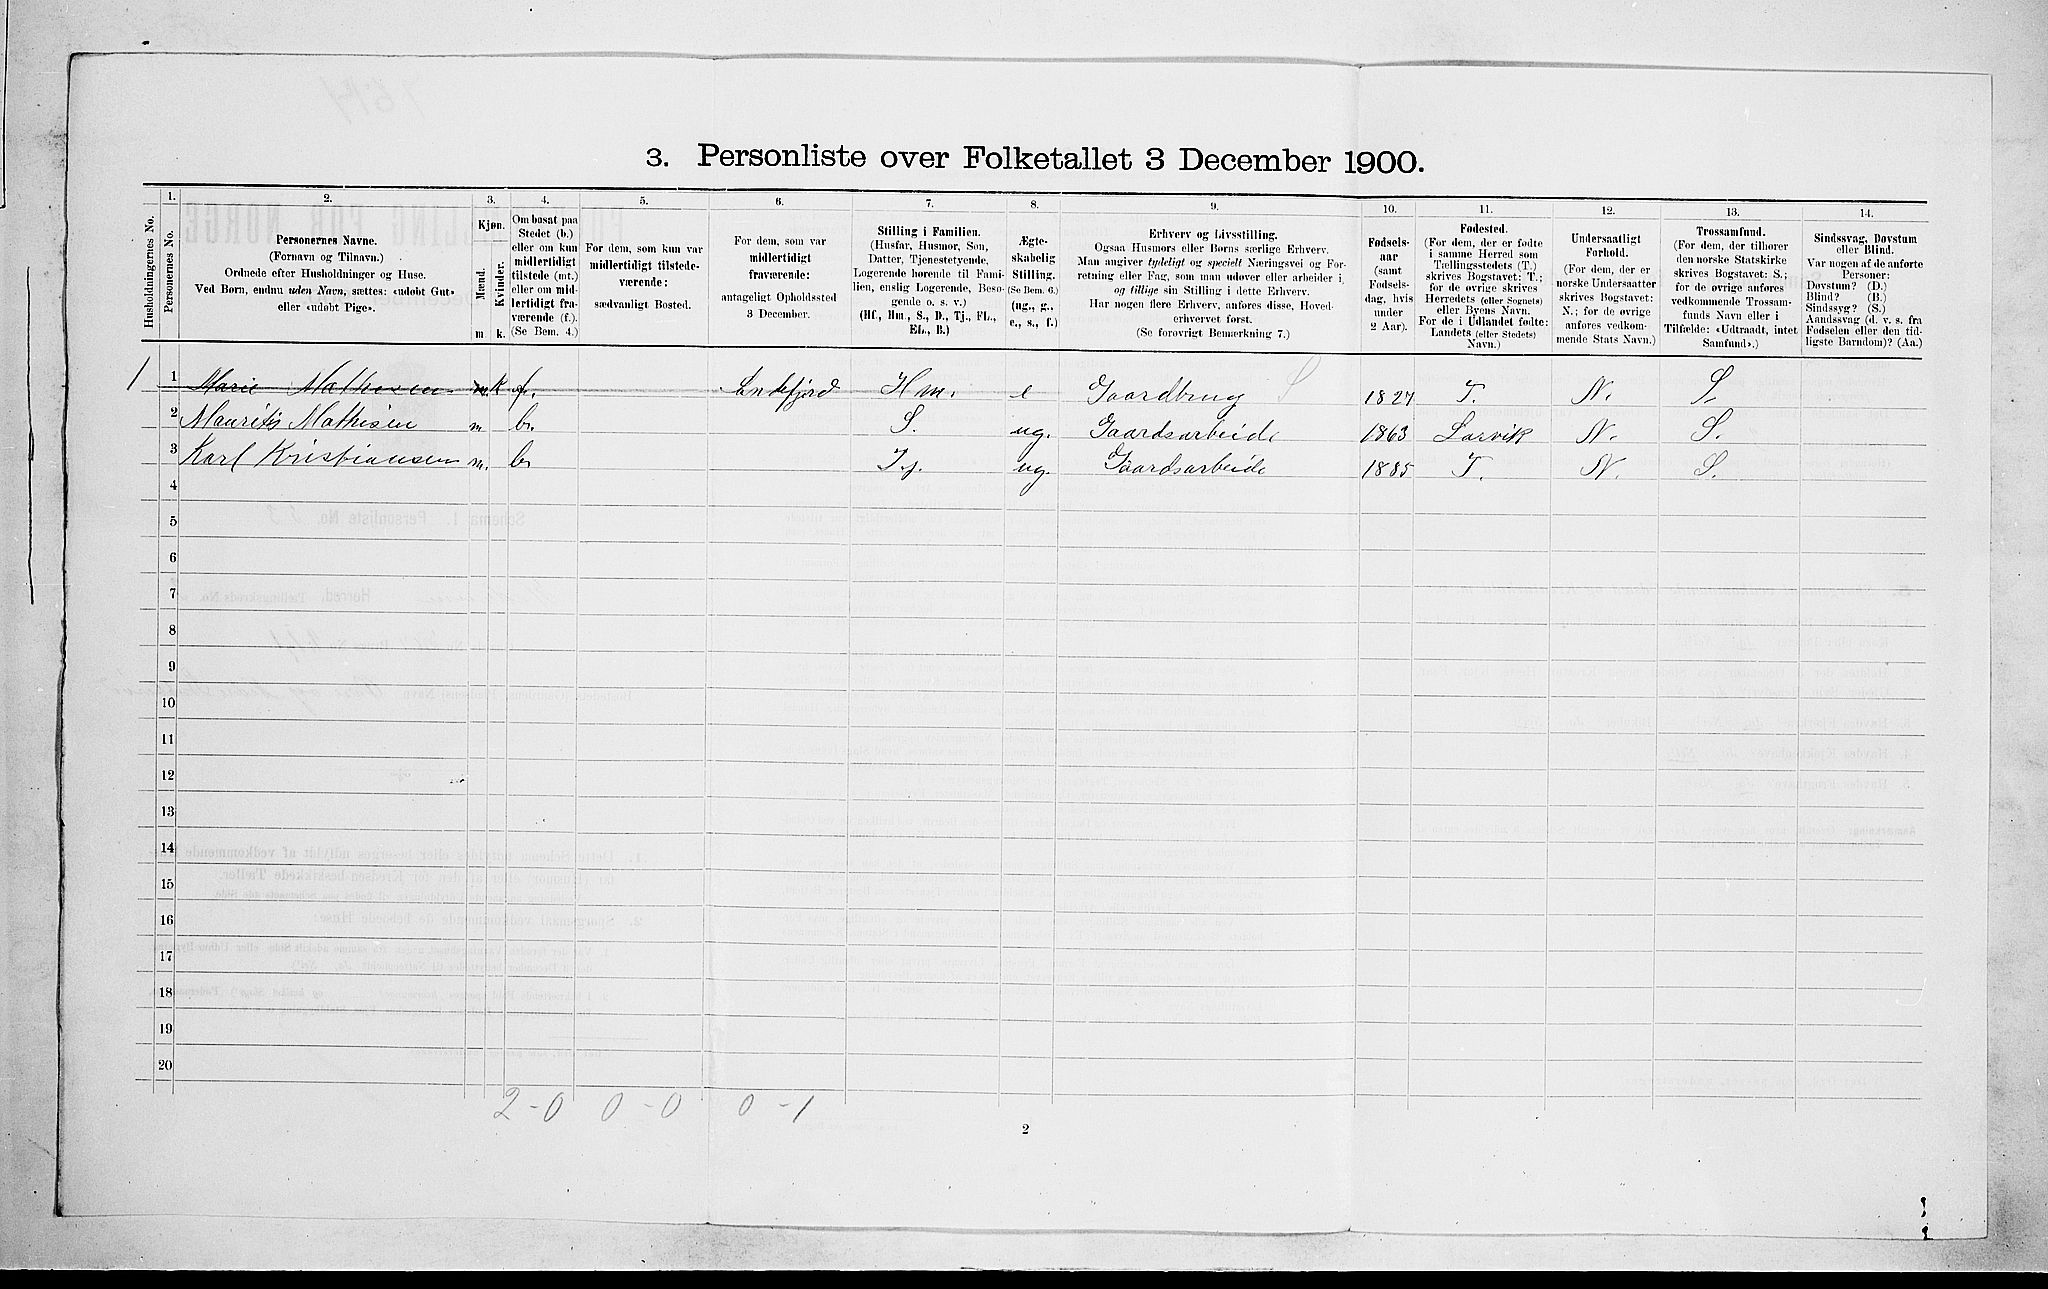 3. Personliste over Folketallet 3 December 1900.
1. 2. 3. 4. 5. 6. 7. 8. 9. 10. 11. 12. 13. 14.
Husholdningernes No.
Personernes No.
Personernes Navne.
(Fornavn og Tilnavn.)
Ordnede efter Husholdninger og Huse.
Ved Børn, endnu uden Navn, sættes: «udøbt Gut»
eller «udøbt Pige».
Kjøn.
Mænd.
Kvinder.
m. k.
Om bosat paa
Stedet (b.)
eller om kun
midlertidigt
tilstede (mt.)
eller om mid-
lertidigt fra-
værende (f.).
(Se Bem. 4.)
For dem, som kun var
midlertidigt tilstede-
værende:
sædvanligt Bosted.
For dem, som var
midlertidigt
fraværende:
antageligt Opholdssted
3 December.
Stilling i Familien.
(Husfar, Husmor, Søn,
Datter, Tjenestetyende,
Logerende hørende til Fami-
lien, enslig Logerende, Besø-
gende o. s. v.)
(Hf., Hm., S., D., Tj., FL.,
EL., B.)
Ægte-
skabelig
Stilling.
(Se Bem. 6.)
(ug., g.,
e., s., f.)
Erhverv og Livsstilling.
Ogsaa Husmors eller Børns særlige Erhverv.
Man angiver tydeligt og specielt Næringsvei og For-
retning eller Fag, som man udøver eller arbeider i,
og tillige sin Stilling i dette Erhverv.
Har nogen flere Erhverv, anføres disse, Hoved-
erhvervet først.
(Se forøvrigt Bemærkning 7.)
Fødsels-
aar
(samt
Fødsels-
dag, hvis
under
2 Aar).
Fødested.
(For dem, der er fødte
i samme Herred som
Tællingsstedets (T.)
skrives Bogstavet: T.;
for de øvrige skrives
Herredets (eller Sognets)
eller Byens Navn.
For de i Udlandet fødte:
Landets (eller Stedets)
Navn.)
Undersaatligt
Forhold.
(For dem, der er
norske Undersaatter
skrives Bogstavet:
N.; for de øvrige
anføres vedkom-
mende Stats Navn.)
Trossamfund.
(For dem, der tilhører
den norske Statskirke
skrives Bogstavet: S.;
for de øvrige anføres
vedkommende Trossam-
funds Navn eller i
Tilfælde: «Udtraadt, intet
Samfund».)
Sindssvag, Døvstum
eller Blind.
Var nogen af de anførte
Personer:
Døvstum? (D.)
Blind? (B.)
Sindssyg? (S.)
Aandssvag (d. v. s. fra
Fødselen eller den tid-
ligste Barndom)? (Aa.)
1 1 Marie Mathisen m k f. Sandefjord Hm. e Gaardbrug S 1827 T. N. S.
2 Maurits Mathisen m b. S. ug. Gaardsarbeide 1863 Larvik N. S.
3 Karl Kristiansen m. b Tj. ug. Gaardsarbeide 1885 T. N. S.
4
5
6
7
8
9
10
11
12
13
14
15
16
17
18
19
20
2-0 0-0 0-1
2